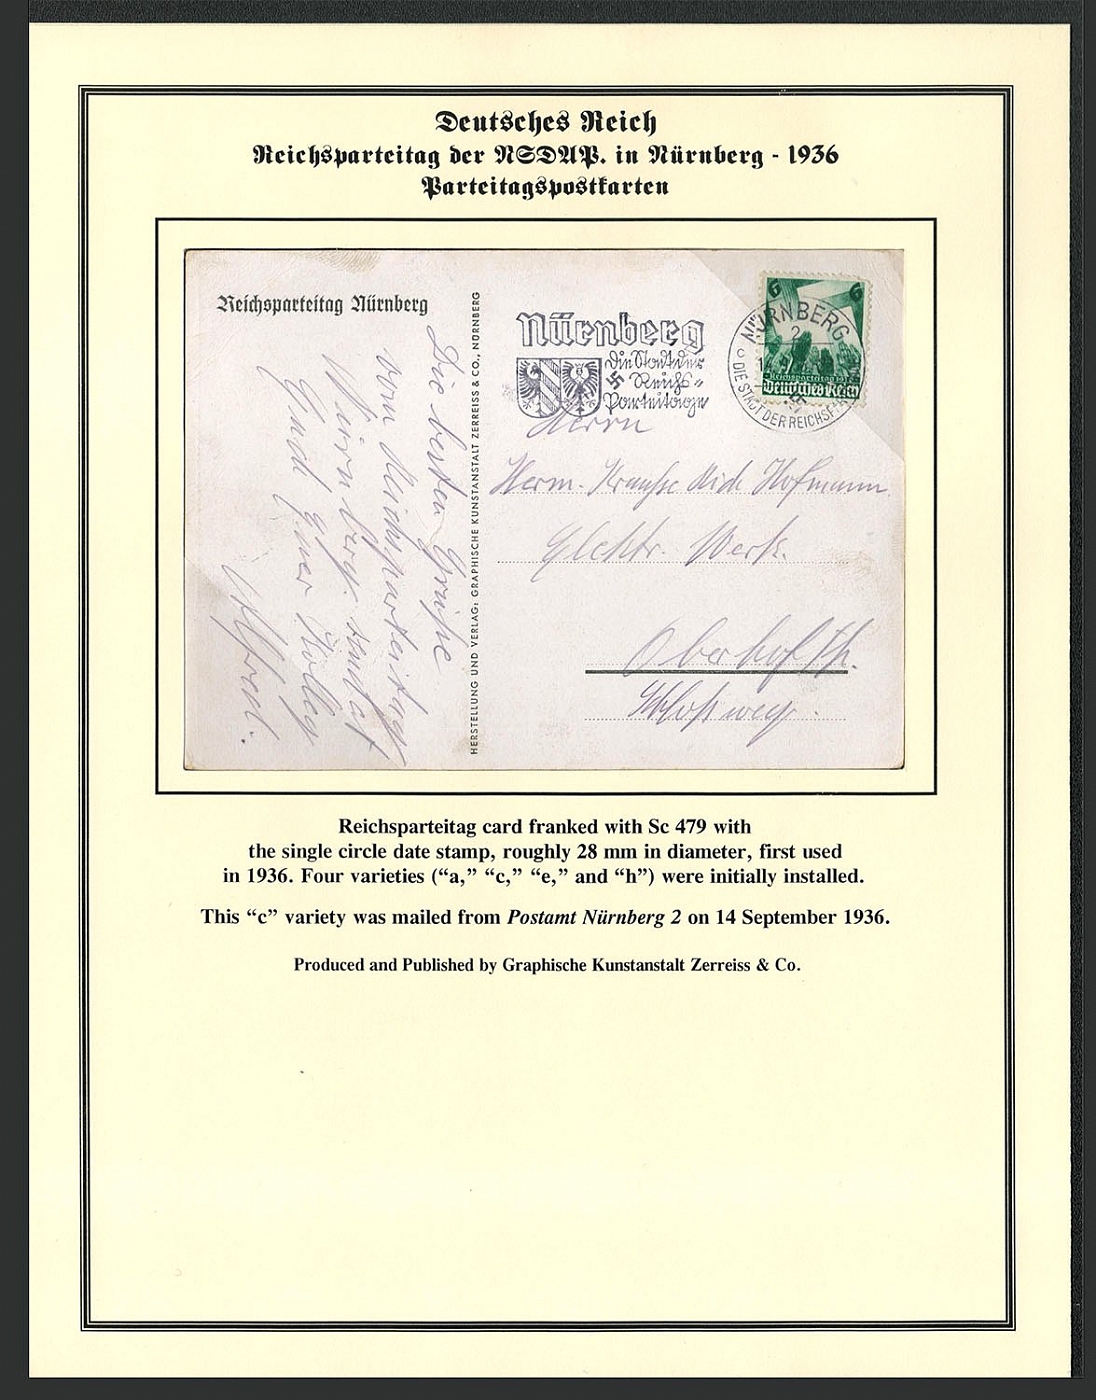 Deutsches Reich
Reichsparteitag der NSDAP. in Nürnberg - 1936
Parteitagspostkarten
Reichsparteitag Nürnberg
Die besten Grüße
vom Reichsparteitag
Nürnberg sendet
Alfred.
HERSTELLUNG UND VERLAG: GRAPHISCHE KUNSTANSTALT ZERREISS & CO., NÜRNBERG
Nürnberg
Die Stadt der
Reichs-
Parteitage
6 6
Reichsparteitag 1936
Deutsches Reich
NÜRNBERG
2
DIE STADT DER REICHSPAR
Herrn
Herm. Hofmann
Elektr. Werk.
Oberhof Th.
Schloßweg.
Reichsparteitag card franked with Sc 479 with
the single circle date stamp, roughly 28 mm in diameter, first used
in 1936. Four varieties (“a,” “c,” “e,” and “h”) were initially installed.
This “c” variety was mailed from Postamt Nürnberg 2 on 14 September 1936.
Produced and Published by Graphische Kunstanstalt Zerreiss & Co.